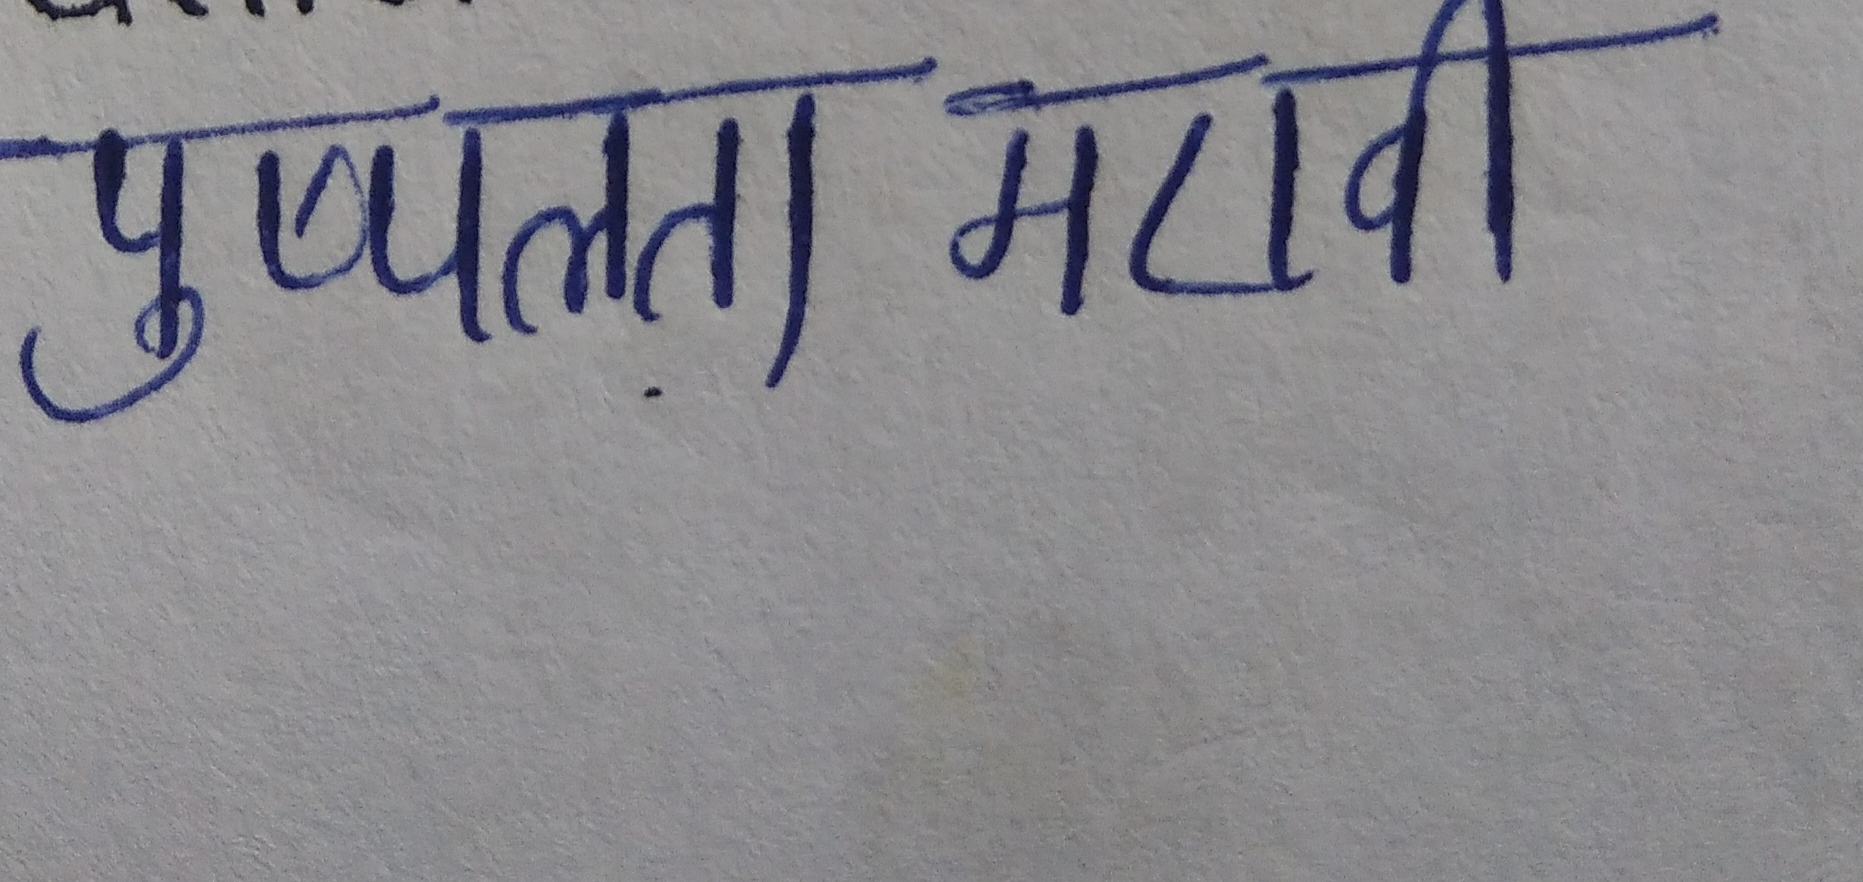 पुष्पलता मरावी